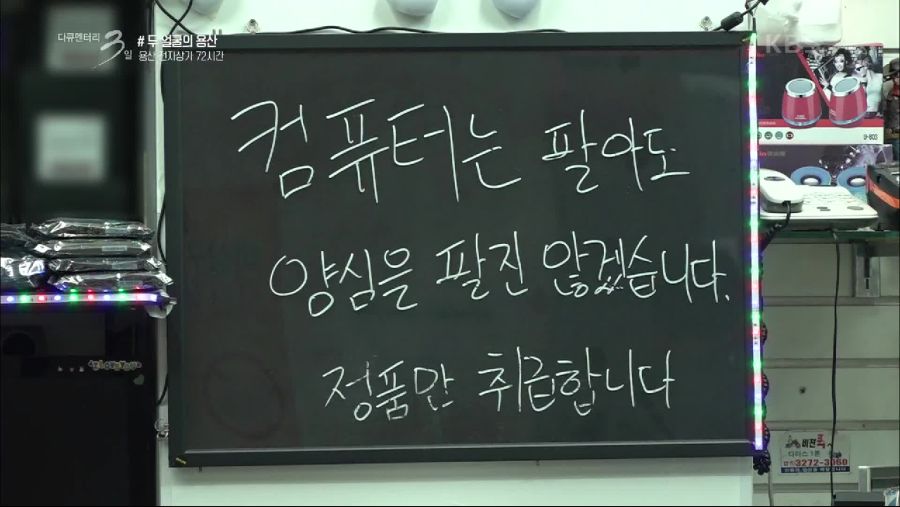 다큐멘터리 3일
# 두 얼굴의 용산
용산 전자상가 72시간
KBS
컴퓨터는 팔아도
양심을 팔진 않겠습니다.
정품만 취급합니다
U-803
비전룩
디타스 1층
3272-3060